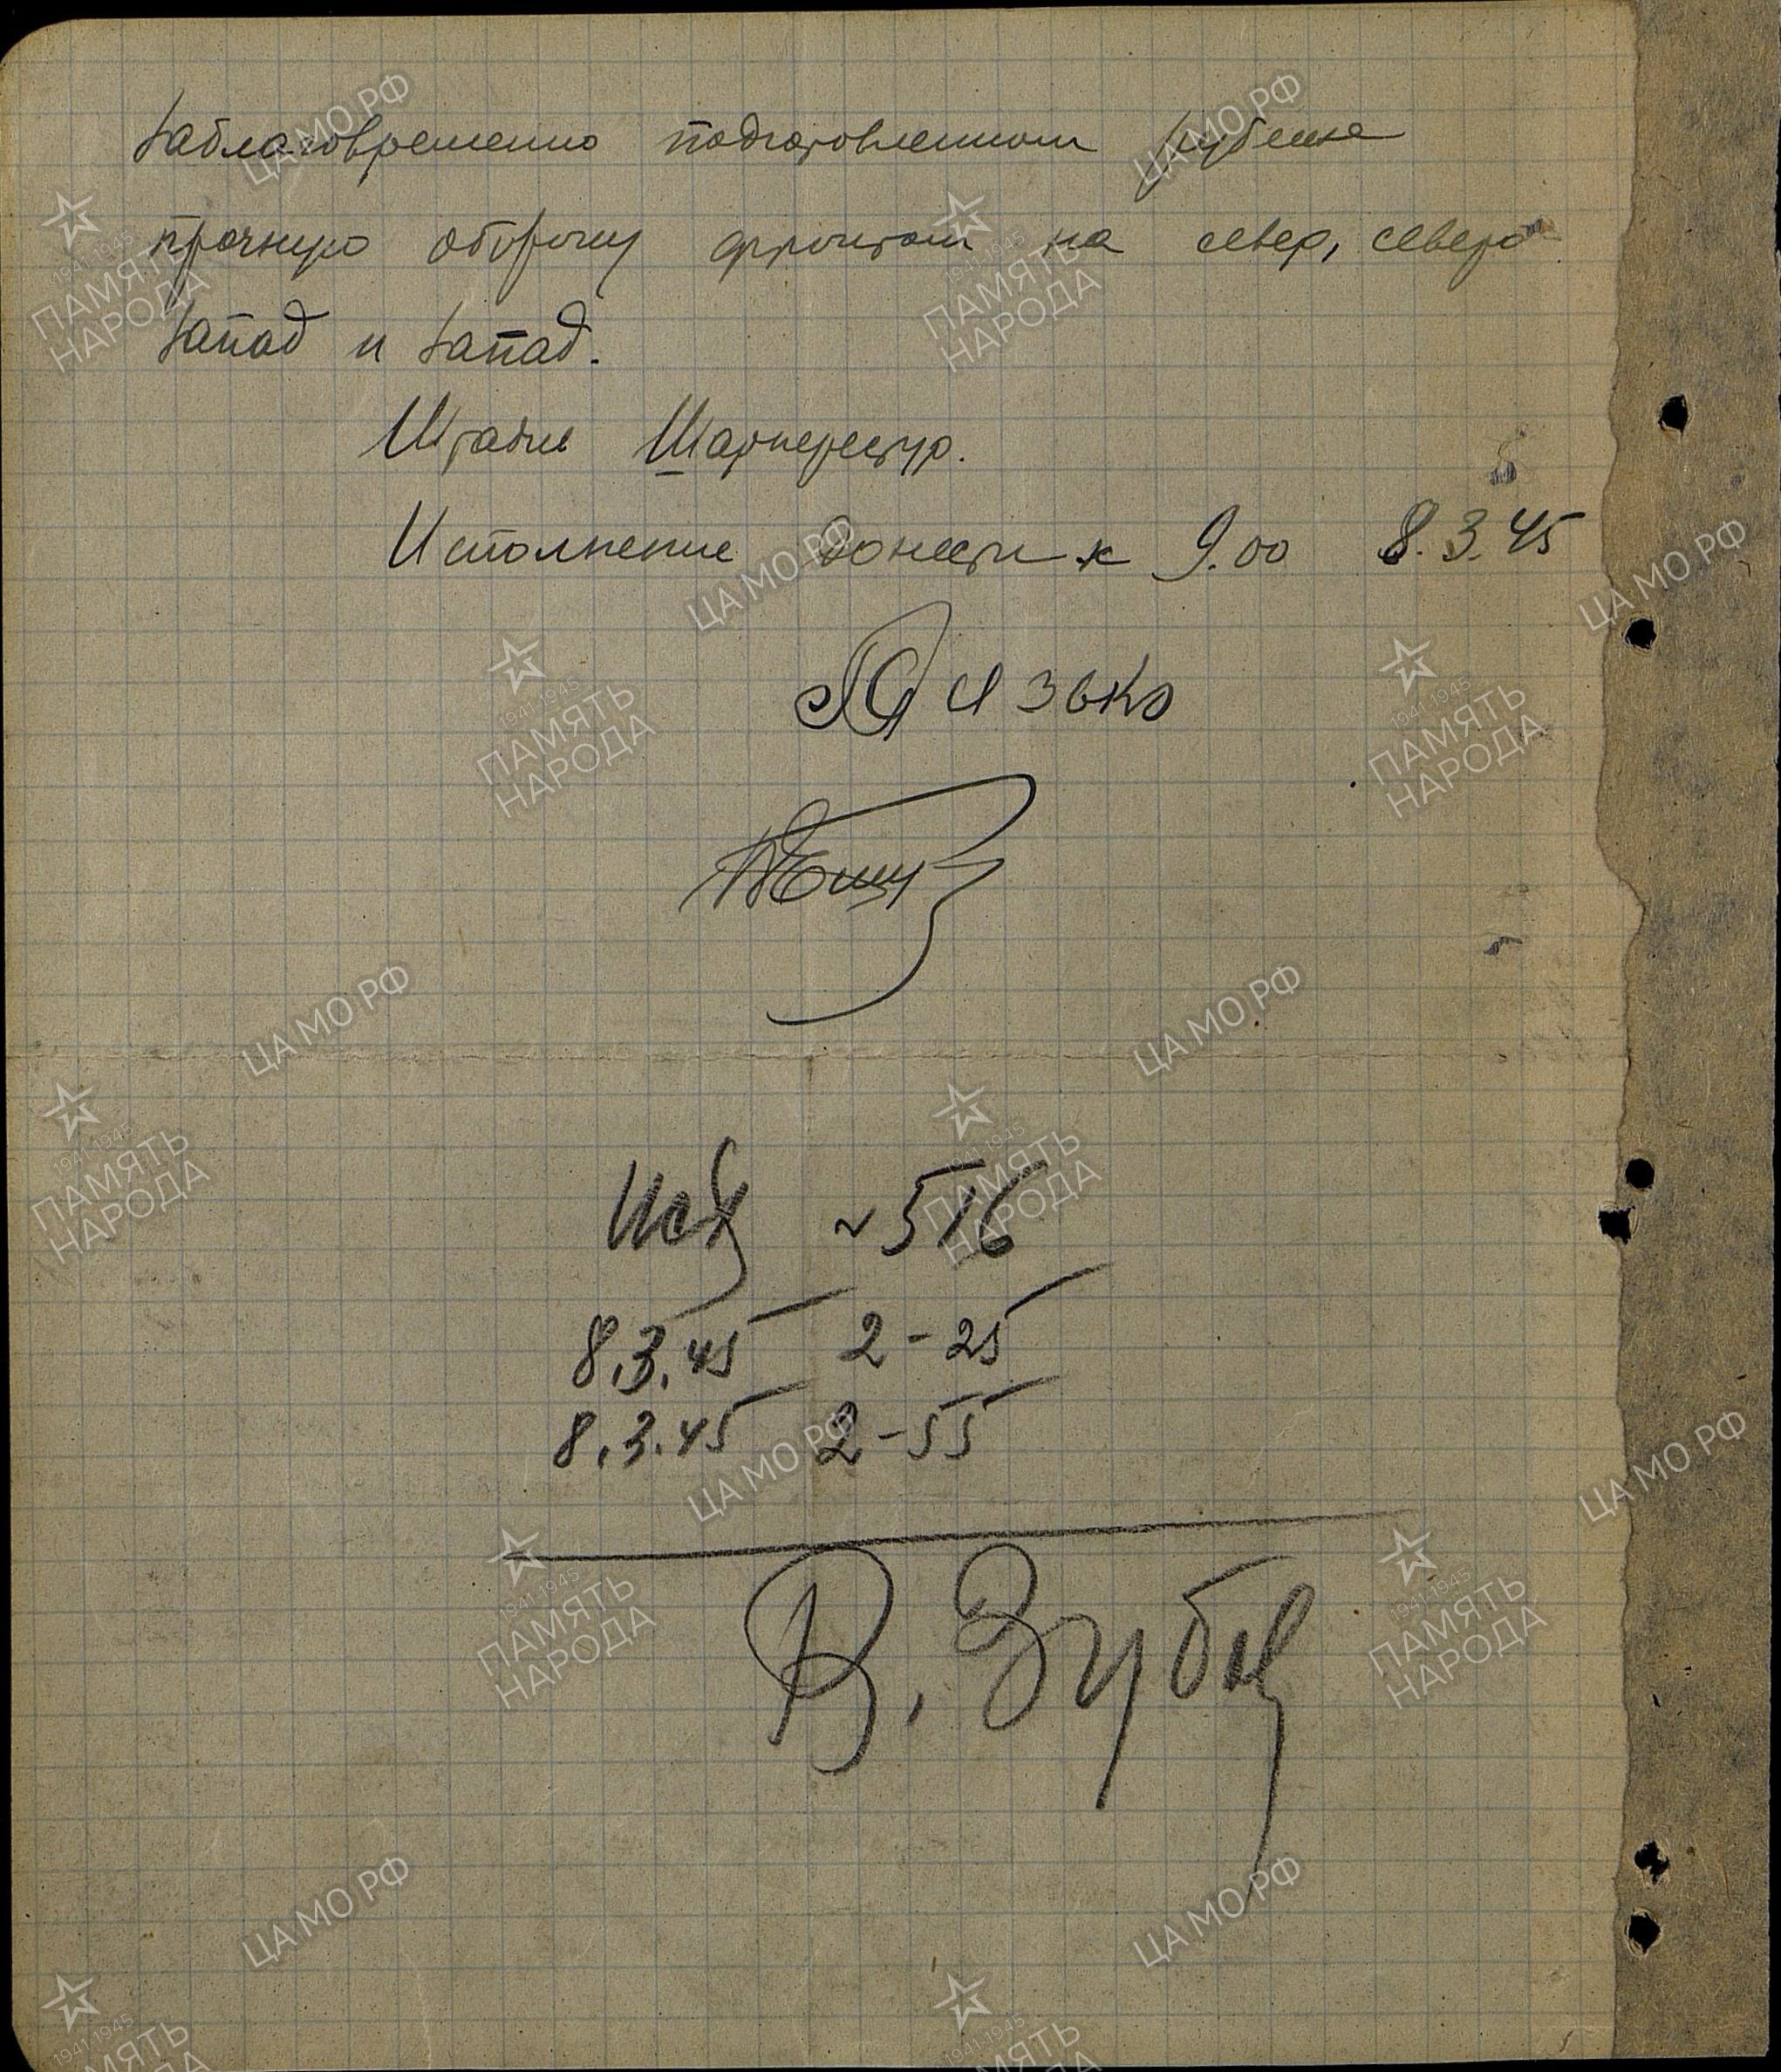 заблаговременно подготовленном рубеже
прочную оборону фронтом на север, северо-
запад и запад.
Штадив Шаркерестур.
Исполнение донести к 9.00 8.3.45
Язько
Исх №516
8.3.45 2-25
8.3.45 2-55
В. Зубов
ЦА МО РФ
1941-1945
ПАМЯТЬ
НАРОДА